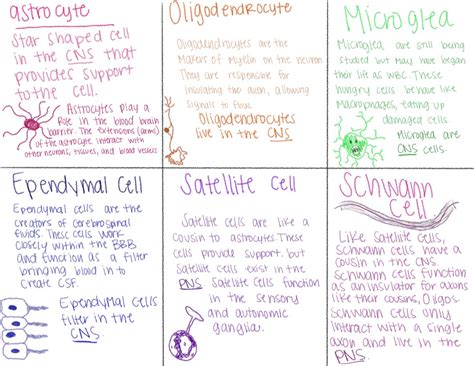 astrocyte
Star shaped cell
in the CNS that
provides support
to the cell.
Astrocytes play a
role in the blood brain
barrier. The extensions (arms)
of the astrocyte interact with
other neurons, tissues, and blood vessels
Oligodendrocyte
Oligodendrocytes are the
makers of myelin on the neuron
They are responsible for
insulating the axon, allowing
signals to flow.
Oligodendrocytes
live in the CNS
Microglea
Microglea are still being
studied but may have began
their life as WBC. These
hungry cells behave like
macrophages, eating up
damaged cells
Microglea are
CNS cells.
Ependymal Cell
Ependymal cells are the
creators of cerebrospinal
fluids. These cells work
closely within the BBB
and function as a filter
bringing blood in to
create CSF.
Ependymal cells
filter in the
CNS
Satellite Cell
Satellite cells are like a
cousin to astrocytes. These
cells provide support, but
Satellite cells exist in the
PNS Satellite cells function
in the sensory
and autonomic
ganglia.
Schwann
Cell
Like Satellite cells,
Schwann cells have a
cousin in the CNS.
Schwann cells function
as an insulator for axons
like their cousins, Oligos.
Schwann cells only
interact with a single
axon and live in the
PNS.